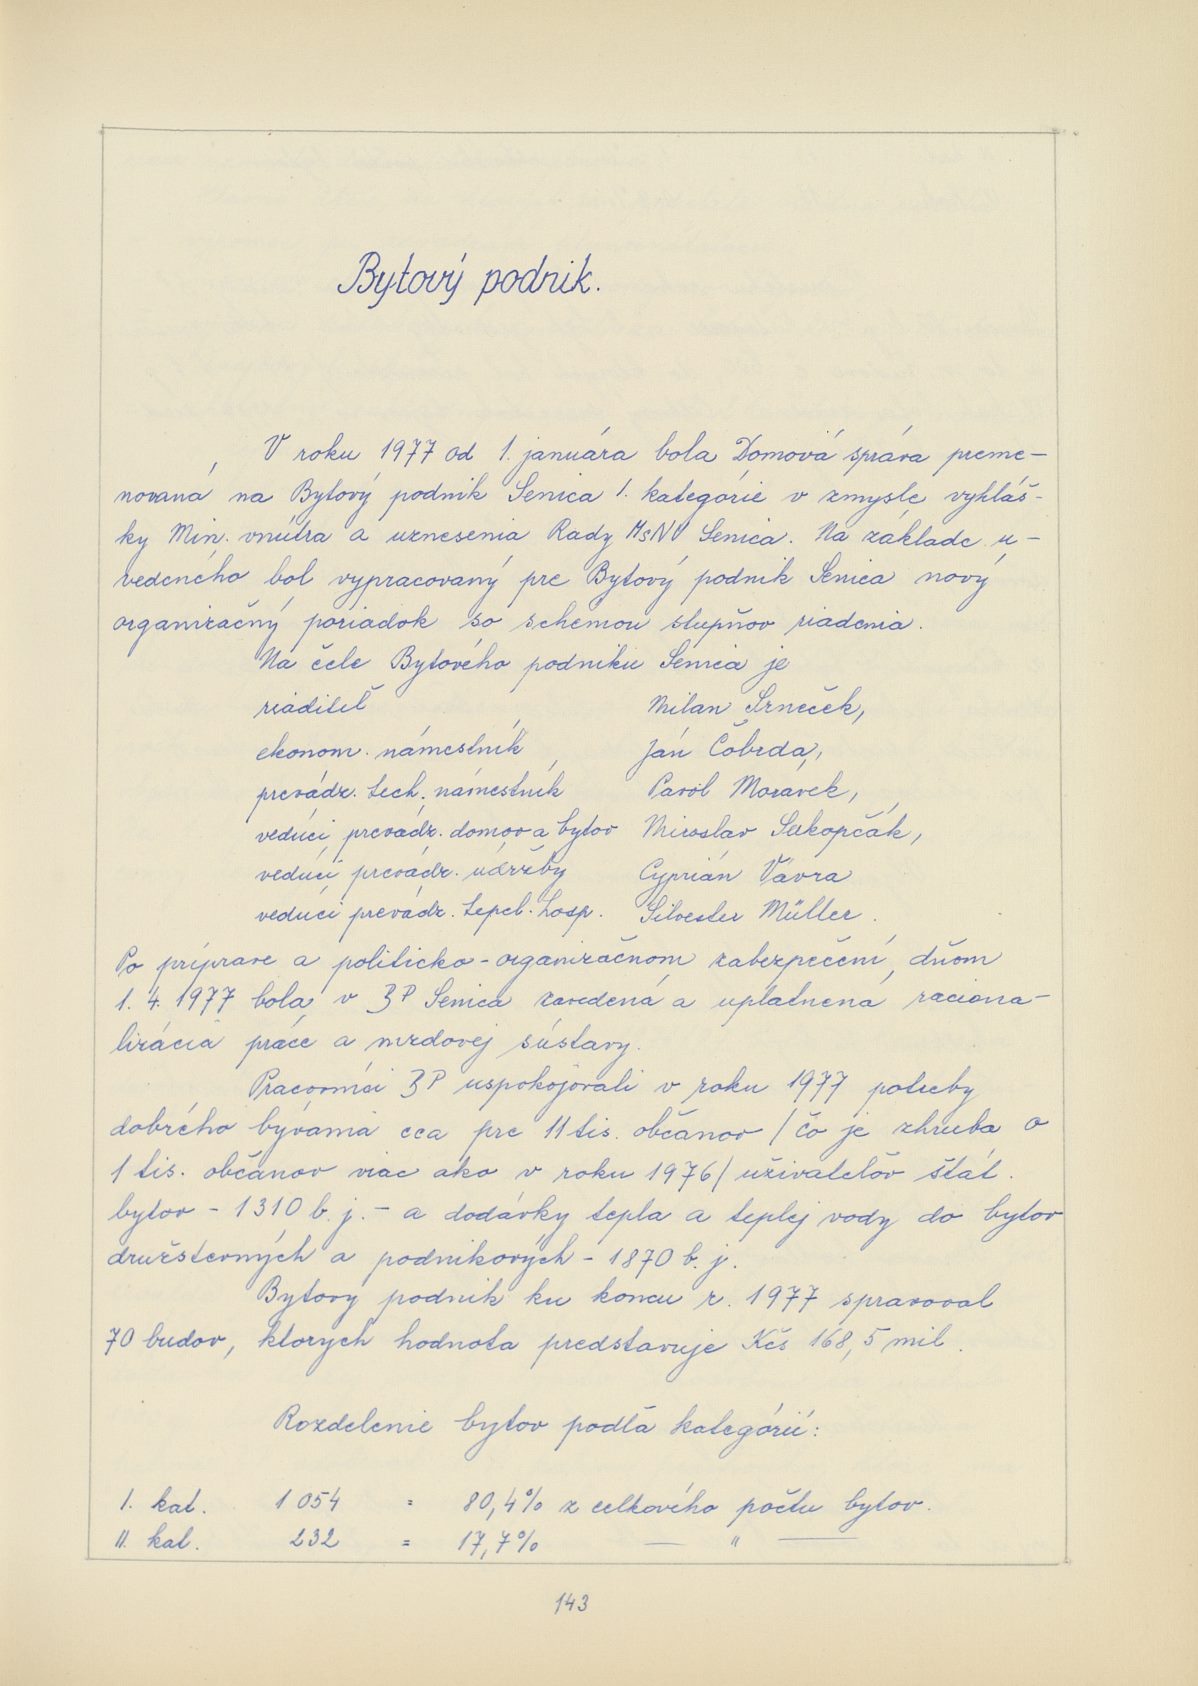 Bytový podnik.
V roku 1977 od 1. januára bola Domová správa preme-
novaná na Bytový podnik Senica 1. kategórie v zmysle vyhláš-
ky Min. vnútra a uznesenia Rady MsNV Senica. Na základe u-
vedeného bol vypracovaný pre Bytový podnik Senica nový
organizačný poriadok so schémou stupňov riadenia.
Na čele Bytového podniku Senica je
riaditeľ Milan Srneček,
ekonom. námestník Ján Čobrda,
prevádz. tech. námestník Pavol Morávek,
vedúci prevádz. domov a bytov Miroslav Sekopčák,
vedúci prevádz. údržby Cyprián Vávra
vedúci prevádz. tepel. hosp. Silvester Müller.
Po príprave a politicko-organizačnom zabezpečení, dňom
1. 4. 1977 bola v BP Senica zavedená a uplatnená raciona-
lizácia práce a mzdovej sústavy.
Pracovníci BP uspokojovali v roku 1977 potreby
dobrého bývania cca pre 11 tis. občanov /čo je zhruba o
1 tis. občanov viac ako v roku 1976/ užívateľov štát.
bytov - 1310 b. j. - a dodávky tepla a teplej vody do bytov
družstevných a podnikových - 1870 b. j.
Bytový podnik ku koncu r. 1977 spravoval
70 budov, ktorých hodnota predstavuje Kčs 168,5 mil.
Rozdelenie bytov podľa kategórií:
I. kat. 1 054 = 80,4% z celkového počtu bytov.
II. kat. 232 = 17,7% — " —
143